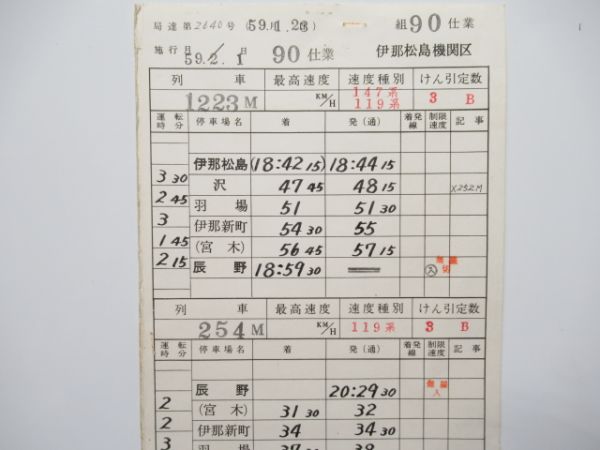 局達第2640号(59.1.28) 組90仕業
施行 59.2.1 90仕業 伊那松島機関区
列車 最高速度 速度種別 けん引定数
1223M KM/H 147系 119系 3 B
運転時分 停車場名 着 発(通) 着発線 制限速度 記事
伊那松島 (18:42 15) 18:44 15
3 30 沢 47 45 48 15 X252M
2 45 羽場 51 51 30
3 伊那新町 54 30 55
1 45 (宮木) 56 45 57 15
2 15 辰野 18:59 30 入 切
列車 最高速度 速度種別 けん引定数
254M KM/H 119系 3 B
運転時分 停車場名 着 発(通) 着発線 制限速度 記事
辰野 20:29 30 無線 入
2 (宮木) 31 30 32
2 伊那新町 34 34 30
3 羽場